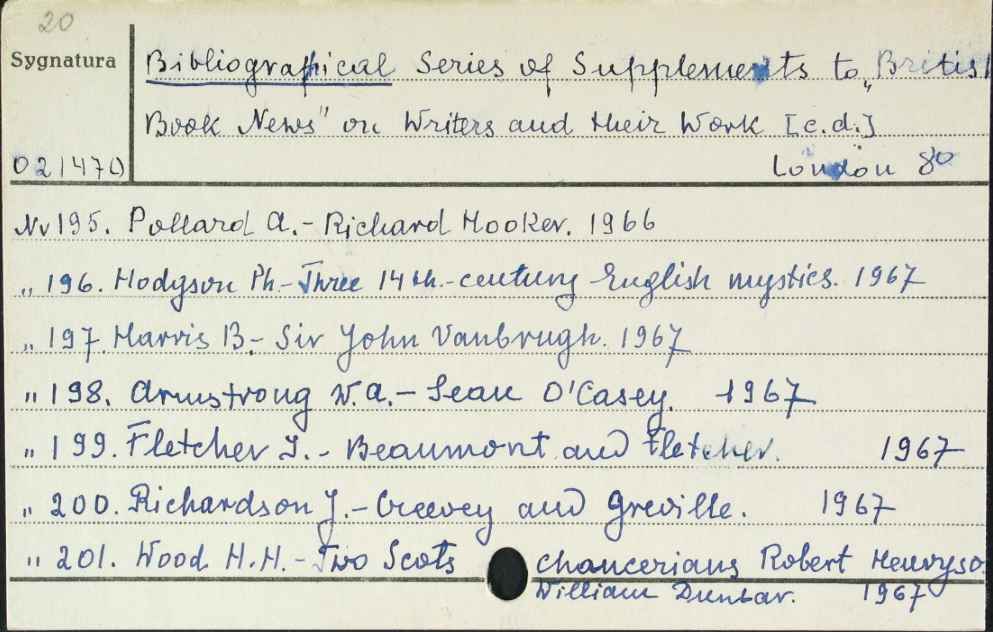 20
Sygnatura
Bibliographical Series of Supplements to „British
Book News" on Writers and their Work [c.d.]
021470
London 8º
Nr 195. Pollard A. - Richard Hooker. 1966
„ 196. Hodgson Ph. - Three 14th.-century English mystics. 1967
„ 197. Harris B - Sir John Vanbrugh. 1967
„ 198. Armstrong W.A. - Sean O'Casey. 1967
„ 199. Fletcher I. - Beaumont and Fletcher. 1967
„ 200. Richardson J. - Creevey and Greville. 1967
„ 201. Wood H.H. - Two Scots chaucerians Robert Henryso
William Dunbar. 1967